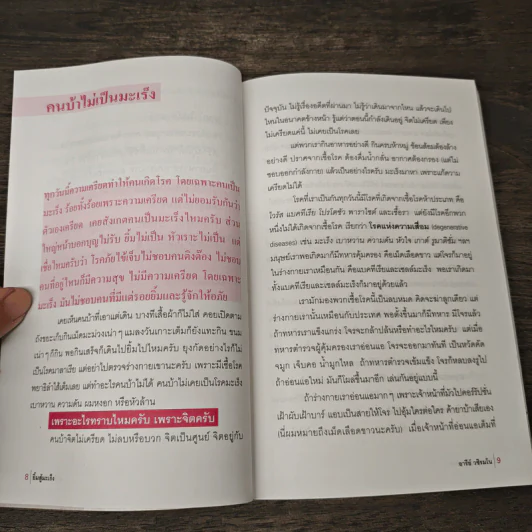 คนบ้าไม่เป็นมะเร็ง
ทุกวันนี้ความเครียดทำให้คนเกิดโรค โดยเฉพาะคนเป็น
มะเร็ง ร้อยทั้งร้อยเพราะความเครียด แต่ไม่ยอมรับกันว่า
ตัวเองเครียด เคยสังเกตคนเป็นมะเร็งไหมครับ ส่วน
ใหญ่หน้าบอกบุญไม่รับ ยิ้มไม่เป็น หัวเราะไม่เป็น แต่
เชื่อไหมครับว่า โรคภัยไข้เจ็บไม่ชอบคนดีงต๊อง ไม่ชอบ
คนที่อยู่ไหนก็มีความสุข ไม่มีความเครียด โดยเฉพาะ
มะเร็ง มันไม่ชอบคนที่มีแต่รอยยิ้มและรู้จักให้อภัย
เคยเห็นคนบ้าที่เอาแต่เดิน บางทีเสื้อผ้าก็ไม่ใส่ คอยเปิดตาม
ถังขยะเก็บกินเม็ดมะม่วงเน่าๆ แมลงวันเกาะเต็มก็ยังแทะกิน ขนม
เน่าๆ ก็กิน พอกินเสร็จก็เดินไปยิ้มไปไหมครับ ยุงกัดอย่างไรก็ไม่
เป็นไข้มาลาเรีย แต่อย่าไปตรวจร่างกายเขานะครับ เพราะมีเชื้อโรค
พยาธิลำไส้เต็มเลย แต่ทำอะไรคนบ้าไม่ได้ คนบ้าไม่เคยเป็นโรคมะเร็ง
เบาหวาน ความดัน ผมหงอก หรือหัวล้าน
เพราะอะไรทราบไหมครับ เพราะจิตครับ
คนบ้าจิตไม่เครียด ไม่ลบหรือบวก จิตเป็นศูนย์ จิตอยู่กับ
8 | ยิ้มสู้มะเร็ง
ปัจจุบัน ไม่รู้เรื่องอดีตที่ผ่านมา ไม่รู้ว่าเดินมาจากไหน แล้วจะเดินไป
ไหนในอนาคตข้างหน้า รู้แต่ว่าตอนนี้กำลังเดินอยู่ จิตไม่เครียด เพียง
ไม่เครียดแค่นี้ ไม่เคยเป็นโรคเลย
แต่พวกเรากินอาหารอย่างดี กินครบห้าหมู่ ช้อนส้อมต้องล้าง
อย่างดี ปราศจากเชื้อโรค ต้องดื่มน้ำกลั่น อากาศต้องกรอง (แต่ไม่
ชอบออกกำลังกาย) แล้วเป็นอย่างไรครับ มะเร็งมาหา เพราะแก้ความ
เครียดไม่ได้
โรคที่เราเป็นกันทุกวันนี้มีโรคที่เกิดจากเชื้อโรคห้าประเภท คือ
ไวรัส แบคทีเรีย โปรโตซัว พาราไซต์ และเชื้อรา แต่ยังมีโรคอีกพวก
หนึ่งไม่ได้เกิดจากเชื้อโรค เรียกว่า โรคแห่งความเสื่อม (degenerative
diseases) เช่น มะเร็ง เบาหวาน ความดัน หัวใจ เกาต์ ภูมิแพ้ฯลฯ
มนุษย์เราพอเกิดมาก็มีทหารคุ้มครอง คือเม็ดเลือดขาว แต่โจรก็มาอยู่
ในร่างกายเราเหมือนกัน คือแบคทีเรียและเซลล์มะเร็ง พอเราเกิดมา
ทั้งแบคทีเรียและเซลล์มะเร็งก็มาอยู่ด้วยแล้ว
เรามักมองพวกเชื้อโรคนี้เป็นลบหมด คิดจะฆ่าลูกเดียว แต่
ร่างกายเรานั้นเหมือนกับประเทศ พอตั้งขึ้นมาก็มีทหาร มีโจรแล้ว
ถ้าทหารเราแข็งแกร่ง โจรจะกล้าปล้นหรือทำอะไรไหมครับ แต่เมื่อ
ทหารตำรวจผู้คุ้มครองเราอ่อนแอ โจรจะออกมาทันที เป็นหวัดคัด
จมูก เจ็บคอ น้ำมูกไหล ถ้าทหารตำรวจเข้มแข็ง โจรก็หลบลงรูไป
ถ้าอ่อนแอใหม่ มันก็โผล่ขึ้นมาอีก เล่นกันอยู่แบบนี้
ถ้าร่างกายเราอ่อนแอมากๆ เพราะเจ้าหน้าที่มัวไปคอร์รัปชัน
เฝ้าผับเฝ้าบาร์ แอบเป็นสายให้โจร ไปอุ้มใครต่อใคร ค้ายาบ้าเสียเอง
(นี่ผมหมายถึงเม็ดเลือดขาวนะครับ) เมื่อเจ้าหน้าที่อ่อนแอเต็มที่
อารีย์ วชิรมโน | 9